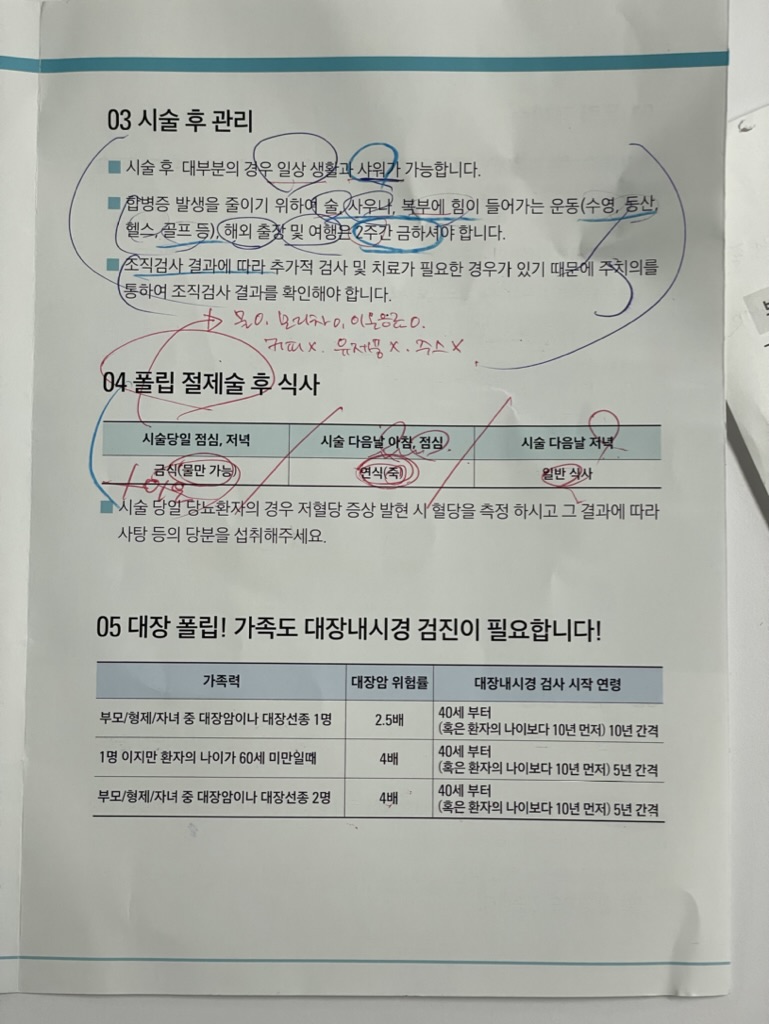 03 시술 후 관리
시술 후 대부분의 경우 일상 생활과 샤워가 가능합니다.
합병증 발생을 줄이기 위하여 술, 사우나, 복부에 힘이 들어가는 운동(수영, 등산,
헬스, 골프 등), 해외 출장 및 여행은 2주간 금하셔야 합니다.
조직검사 결과에 따라 추가적 검사 및 치료가 필요한 경우가 있기 때문에 주치의를
통하여 조직검사 결과를 확인해야 합니다.
→ 물O, 보리차O, 이온음료O.
커피X. 유제품X. 주스X
04 폴립 절제술 후 식사
시술당일 점심, 저녁 시술 다음날 아침, 점심 시술 다음날 저녁
금식(물만 가능) 연식(죽) 일반 식사
시술 당일 당뇨환자의 경우 저혈당 증상 발현 시 혈당을 측정 하시고 그 결과에 따라
사탕 등의 당분을 섭취해주세요.
05 대장 폴립! 가족도 대장내시경 검진이 필요합니다!
가족력 대장암 위험률 대장내시경 검사 시작 연령
부모/형제/자녀 중 대장암이나 대장선종 1명 2.5배 40세 부터
(혹은 환자의 나이보다 10년 먼저) 10년 간격
1명 이지만 환자의 나이가 60세 미만일때 4배 40세 부터
(혹은 환자의 나이보다 10년 먼저) 5년 간격
부모/형제/자녀 중 대장암이나 대장선종 2명 4배 40세 부터
(혹은 환자의 나이보다 10년 먼저) 5년 간격